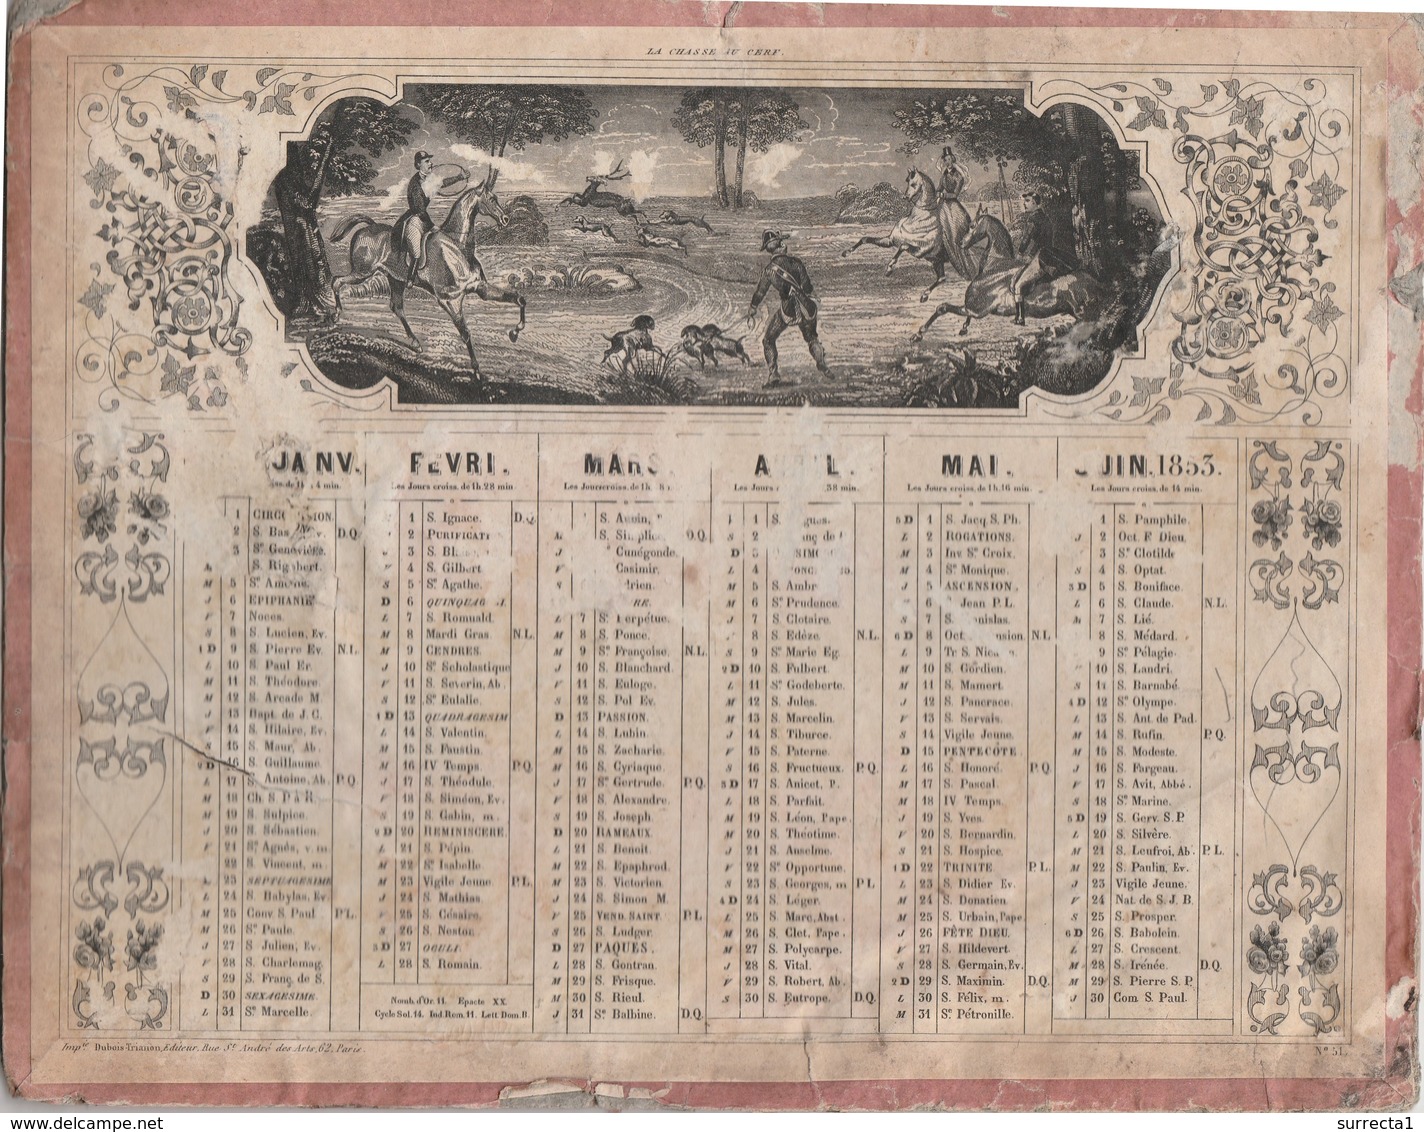 LA CHASSE AU CERF.
JANV. FÉVRI. MARS. A L. MAI. JUIN. 1853.
4 min.
Les Jours croiss. de 1h. 28 min.
Les Jours croiss. de 1h.
Les Jours 38 min.
Les Jours croiss. de 1h. 16 min.
Les Jours croiss. de 14 min.
1 CIRCONCISION.
2 S. Bas D.Q.
3 Ste Geneviève.
S. Rigobert.
M 5 Ste Amélie.
J 6 EPIPHANIE
V 7 Noces.
S 8 S. Lucien, Ev.
1 D 9 S. Pierre Ev. N.L.
L 10 S. Paul Er.
M 11 S. Théodore.
M 12 S. Arcade M.
J 13 Bapt. de J. C.
V 14 S. Hilaire, Ev.
S 15 S. Maur, Ab.
2 D 16 S. Guillaume.
L 17 S. Antoine, Ab. P.Q.
M 18 Ch. S. P. à R.
M 19 S. Sulpice.
J 20 S. Sébastien.
V 21 Ste Agnès, v. m.
22 S. Vincent, m.
23 SEPTUAGESIME
L 24 S. Babylas, Ev.
M 25 Conv. S. Paul. P.L.
M 26 Ste Paule.
J 27 S. Julien, Ev.
V 28 S. Charlemag.
S 29 S. Franç. de S.
D 30 SEXAGESIME.
L 31 Ste Marcelle.
1 S. Ignace. D.Q.
2 PURIFICATI
3 S. Bl
V 4 S. Gilbert
S 5 Ste Agathe.
D 6 QUINQUAG
L 7 S. Romuald.
M 8 Mardi Gras. N.L.
M 9 CENDRES.
J 10 Ste Scholastique
V 11 S. Severin, Ab.
S 12 Ste Eulalie.
1 D 13 QUADRAGESIM
L 14 S. Valentin.
M 15 S. Faustin.
M 16 IV Temps. P.Q.
J 17 S. Théodule.
V 18 S. Siméon, Ev.
S 19 S. Gabin, m.
2 D 20 REMINISCERE.
L 21 S. Pépin.
M 22 Ste Isabelle.
M 23 Vigile Jeune. P.L.
J 24 S. Mathias
V 25 S. Césaire.
S 26 S. Nestor.
3 D 27 OCULI.
L 28 S. Romain.
Nomb. d'Or. 11. Epacte XX.
Cycle Sol. 14. Ind. Rom. 11. Lett. Dom. B.
S. Aubin,
S. Simplic D.Q.
Cunégonde.
Casimir.
drien.
RE.
L 7 Ste Perpétue.
M 8 S. Ponce.
M 9 Ste Françoise. N.L.
J 10 S. Blanchard.
V 11 S. Euloge.
S 12 S. Pol Ev.
D 13 PASSION.
L 14 S. Lubin.
M 15 S. Zacharie.
M 16 S. Cyriaque.
J 17 Ste Gertrude. P.Q.
V 18 S. Alexandre.
S 19 S. Joseph.
D 20 RAMEAUX.
L 21 S. Benoit.
M 22 S. Epaphrod.
M 23 S. Victorien.
J 24 S. Simon M.
V 25 VEND. SAINT. P.L
S 26 S. Ludger.
D 27 PAQUES.
L 28 S. Gontran.
M 29 S. Frisque.
M 30 S. Rieul.
J 31 Ste Balbine. D.Q.
1 S.
2
D 3 SIMO
L 4
M 5 S. Ambr
M 6 Ste Prudence.
J 7 S. Clotaire.
8 S. Edèze. N.L.
S 9 Ste Marie Eg.
2 D 10 S. Fulbert.
L 11 Ste Godeberte.
M 12 S. Jules.
M 13 S. Marcelin.
J 14 S. Tiburce.
V 15 S. Paterne.
S 16 S. Fructueux. P.Q.
3 D 17 S. Anicet, P.
L 18 S. Parfait.
M 19 S. Léon, Pape.
M 20 S. Théotime.
J 21 S. Anselme.
V 22 Ste Opportune.
S 23 S. Georges, m P.L
4 D 24 S. Léger.
L 25 S. Marc, Abst.
M 26 S. Clet, Pape.
M 27 S. Polycarpe.
J 28 S. Vital.
V 29 S. Robert, Ab.
S 30 S. Eutrope. D.Q.
5 D 1 S. Jacq. S. Ph.
L 2 ROGATIONS.
M 3 Inv. Ste Croix.
M 4 Ste Monique.
J 5 ASCENSION.
6 Jean P. L.
7 S. nislas.
6 D 8 Oct. nsion. N.L
L 9 Tr S. Nic
M 10 S. Gordien.
M 11 S. Mamert.
J 12 S. Pancrace.
V 13 S. Servais.
S 14 Vigile Jeune.
D 15 PENTECÔTE.
L 16 S. Honoré. P.Q
M 17 S. Pascal.
M 18 IV Temps.
J 19 S. Yves.
V 20 S. Bernardin.
S 21 S. Hospice.
1 D 22 TRINITÉ P.L.
L 23 S. Didier Ev.
M 24 S. Donatien.
M 25 S. Urbain, Pape
J 26 FÊTE DIEU.
V 27 S. Hildevert.
S 28 S. Germain, Ev.
2 D 29 S. Maximin. D.Q.
L 30 S. Félix, m.
M 31 Ste Pétronille.
1 S. Pamphile.
J 2 Oct. F. Dieu.
V 3 Ste Clotilde
S 4 S. Optat.
3 D 5 S. Boniface.
L 6 S. Claude. N.L.
M 7 S. Lié.
8 S. Médard.
9 Ste Pélagie.
10 S. Landri.
S 11 S. Barnabé.
4 D 12 Ste Olympe.
L 13 S. Ant. de Pad.
M 14 S. Rufin. P.Q.
M 15 S. Modeste.
J 16 S. Fargeau.
V 17 S. Avit, Abbé.
S 18 Ste Marine.
5 D 19 S. Gerv. S. P.
L 20 S. Silvère.
M 21 S. Leufroi, Ab. P.L.
M 22 S. Paulin, Ev.
J 23 Vigile Jeune.
V 24 Nat. de S. J. B.
S 25 S. Prosper.
6 D 26 S. Babolein.
L 27 S. Crescent.
M 28 S. Irénée. D.Q.
M 29 S. Pierre S. P.
J 30 Com S. Paul.
Imp.ie Dubois-Trianon, Editeur, Rue St. André des Arts, 62, Paris.
N° 51.
www.delcampe.net
surrecta1